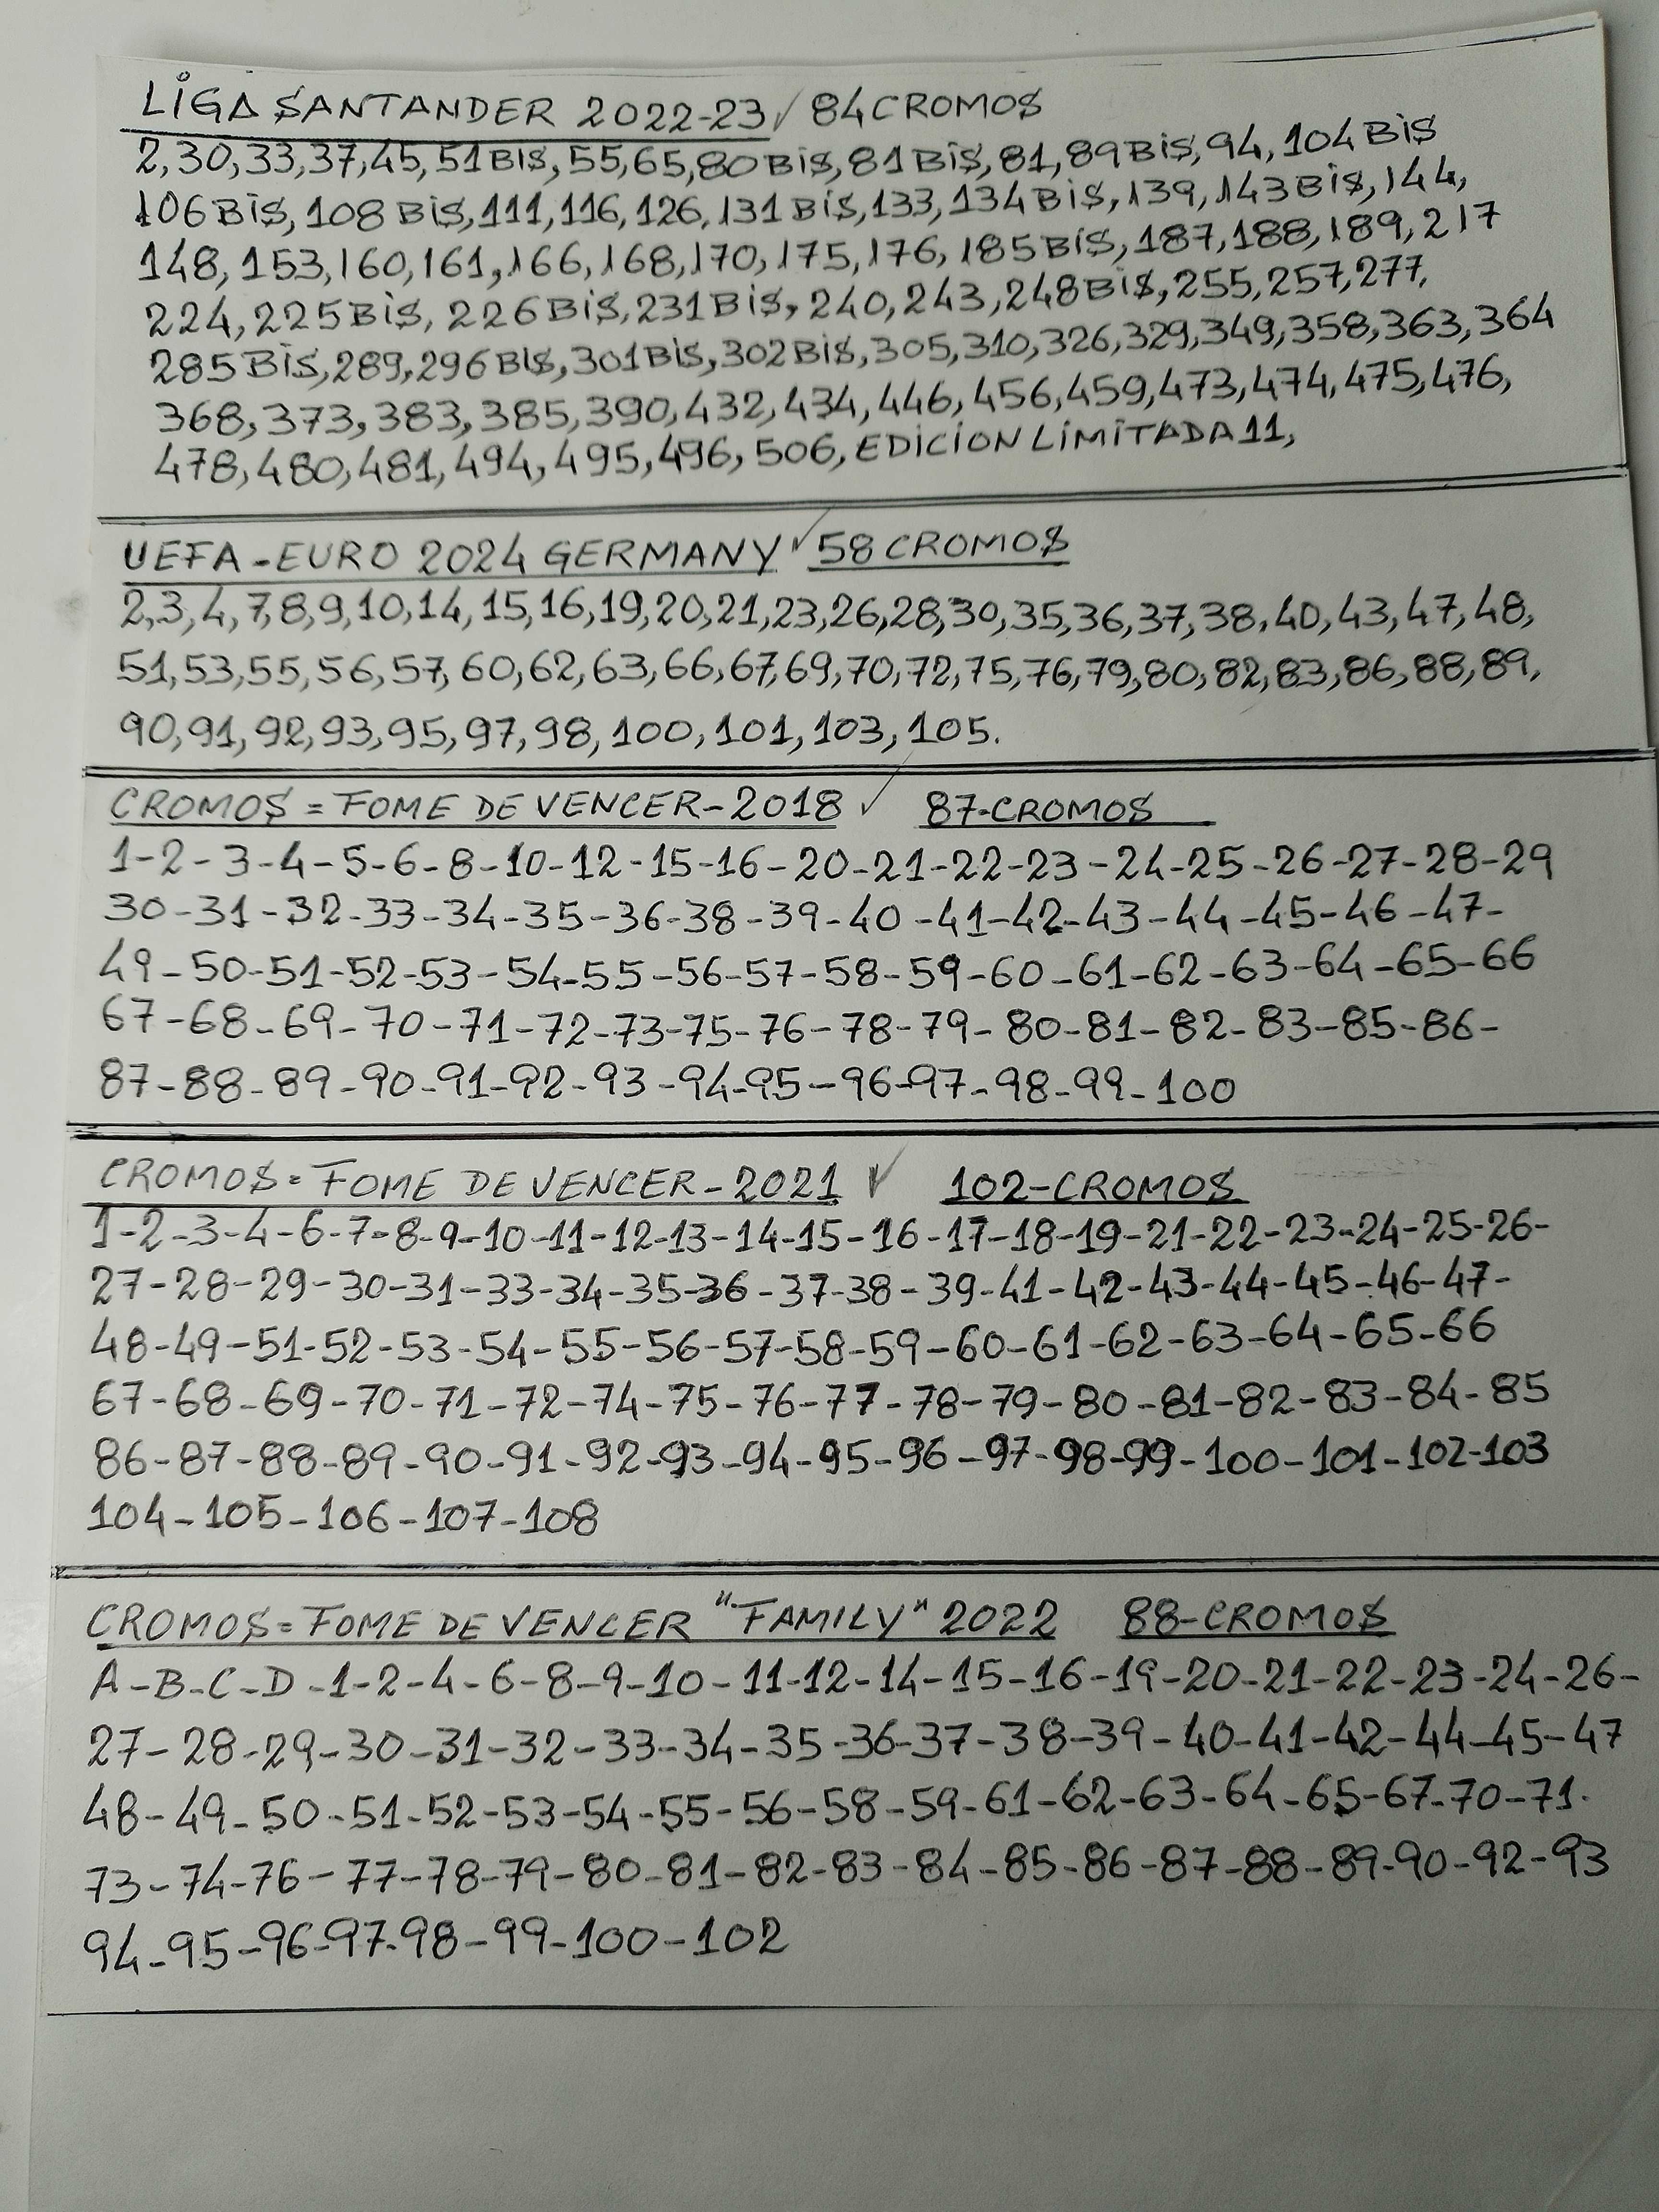 LIGA SANTANDER 2022-23 ✓ 84 CROMOS
2,30,33,37,45,51BIS,55,65,80BIS,81BIS,81,89BIS,94,104BIS
106BIS,108BIS,111,116,126,131BIS,133,134BIS,139,143BIS,144,
148,153,160,161,166,168,170,175,176,185BIS,187,188,189,217
224,225BIS,226BIS,231BIS,240,243,248BIS,255,257,277,
285BIS,289,296BIS,301BIS,302BIS,305,310,326,329,349,358,363,364
368,373,383,385,390,432,434,446,456,459,473,474,475,476,
478,480,481,494,495,496,506,EDICION LIMITADA 11,
UEFA-EURO 2024 GERMANY ✓ 58 CROMOS
2,3,4,7,8,9,10,14,15,16,19,20,21,23,26,28,30,35,36,37,38,40,43,47,48,
51,53,55,56,57,60,62,63,66,67,69,70,72,75,76,79,80,82,83,86,88,89,
90,91,92,93,95,97,98,100,101,103,105.
CROMOS=FOME DE VENCER-2018 ✓ 87-CROMOS
1-2-3-4-5-6-8-10-12-15-16-20-21-22-23-24-25-26-27-28-29
30-31-32-33-34-35-36-38-39-40-41-42-43-44-45-46-47-
49-50-51-52-53-54-55-56-57-58-59-60-61-62-63-64-65-66
67-68-69-70-71-72-73-75-76-78-79-80-81-82-83-85-86-
87-88-89-90-91-92-93-94-95-96-97-98-99-100
CROMOS=FOME DE VENCER-2021 ✓ 102-CROMOS
1-2-3-4-6-7-8-9-10-11-12-13-14-15-16-17-18-19-21-22-23-24-25-26-
27-28-29-30-31-33-34-35-36-37-38-39-41-42-43-44-45-46-47-
48-49-51-52-53-54-55-56-57-58-59-60-61-62-63-64-65-66
67-68-69-70-71-72-74-75-76-77-78-79-80-81-82-83-84-85
86-87-88-89-90-91-92-93-94-95-96-97-98-99-100-101-102-103
104-105-106-107-108
CROMOS=FOME DE VENCER "FAMILY" 2022 88-CROMOS
A-B-C-D-1-2-4-6-8-9-10-11-12-14-15-16-19-20-21-22-23-24-26-
27-28-29-30-31-32-33-34-35-36-37-38-39-40-41-42-44-45-47
48-49-50-51-52-53-54-55-56-58-59-61-62-63-64-65-67-70-71.
73-74-76-77-78-79-80-81-82-83-84-85-86-87-88-89-90-92-93
94-95-96-97-98-99-100-102